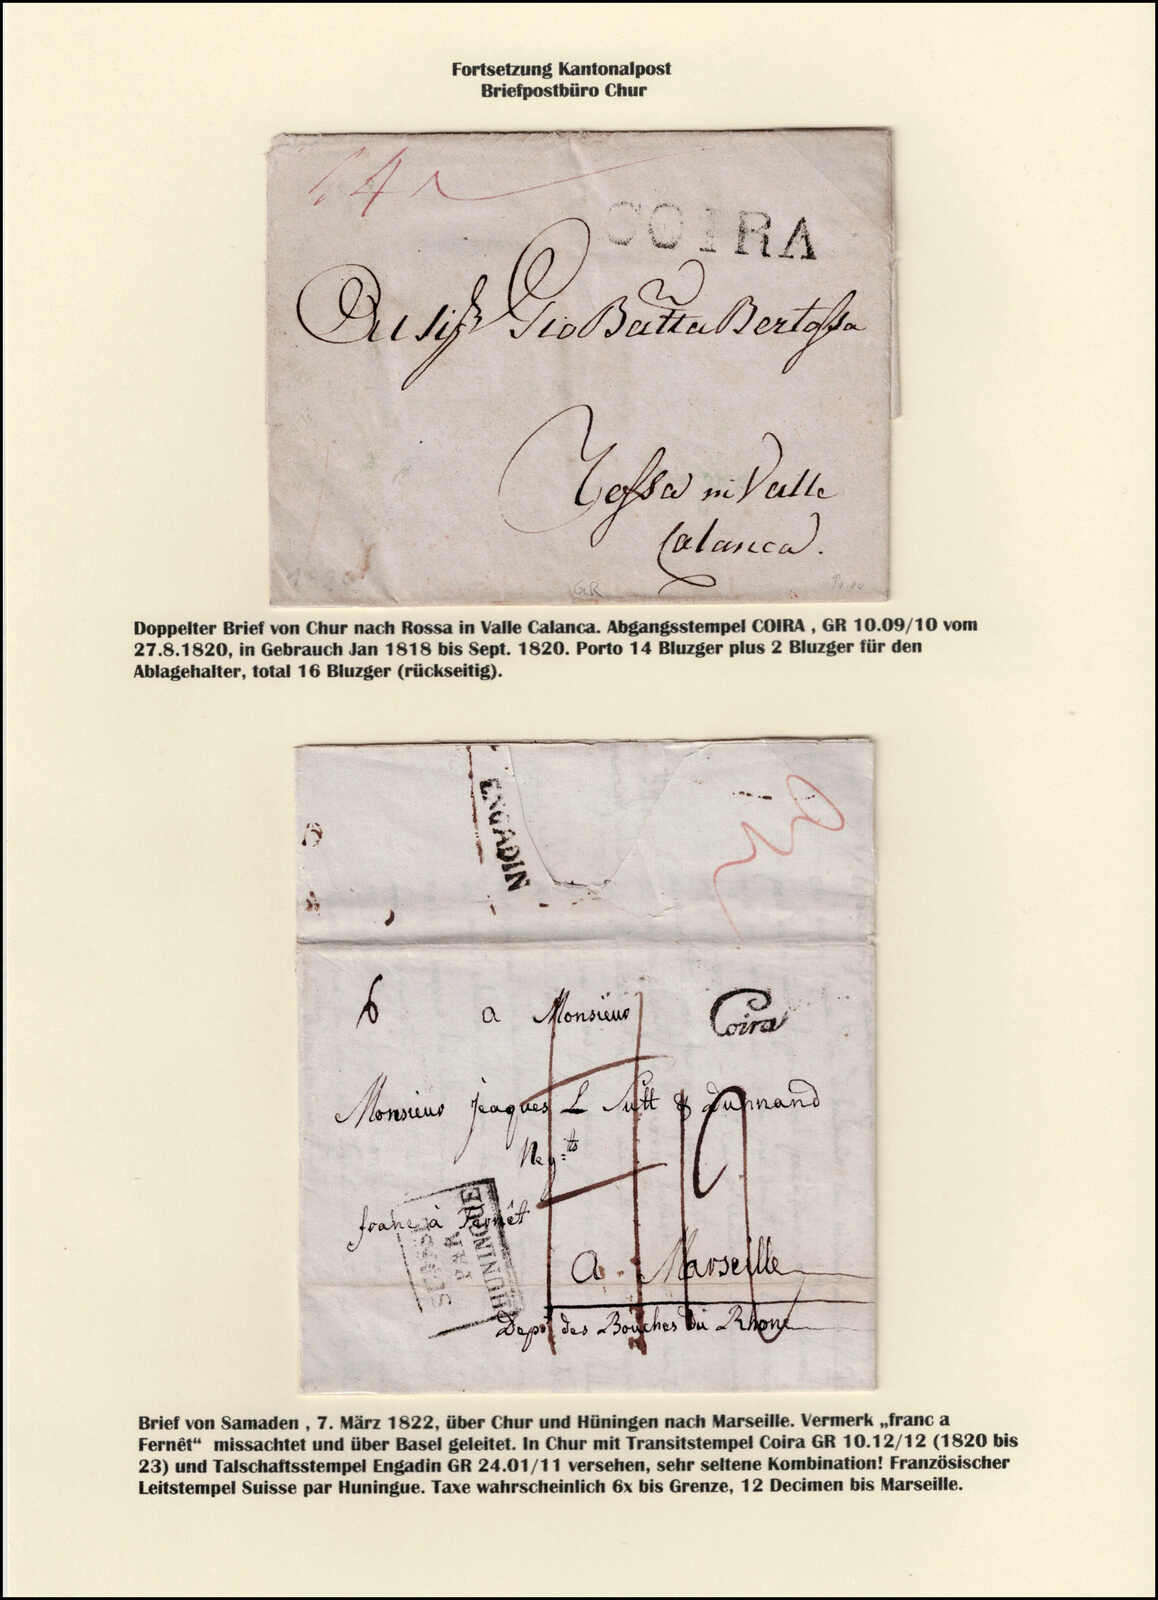 Fortsetzung Kantonalpost
Briefpostbüro Chur
14
COIRA
Gio Batta Bertossa
in Valle
Calanca.
GR
Doppelter Brief von Chur nach Rossa in Valle Calanca. Abgangsstempel COIRA , GR 10.09/10 vom
27.8.1820, in Gebrauch Jan 1818 bis Sept. 1820. Porto 14 Bluzger plus 2 Bluzger für den
Ablagehalter, total 16 Bluzger (rückseitig).
ENGADIN
6 a Monsieur Coira
Monsieur Jeaques L & 
Neg=ts
franc à Fernêt
SUISSE
PAR
HUNINGUE
A Marseille
Dept des Bouches du Rhone
Brief von Samaden , 7. März 1822, über Chur und Hüningen nach Marseille. Vermerk „franc a
Fernêt“ missachtet und über Basel geleitet. In Chur mit Transitstempel Coira GR 10.12/12 (1820 bis
23) und Talschaftsstempel Engadin GR 24.01/11 versehen, sehr seltene Kombination! Französischer
Leitstempel Suisse par Huningue. Taxe wahrscheinlich 6x bis Grenze, 12 Decimen bis Marseille.